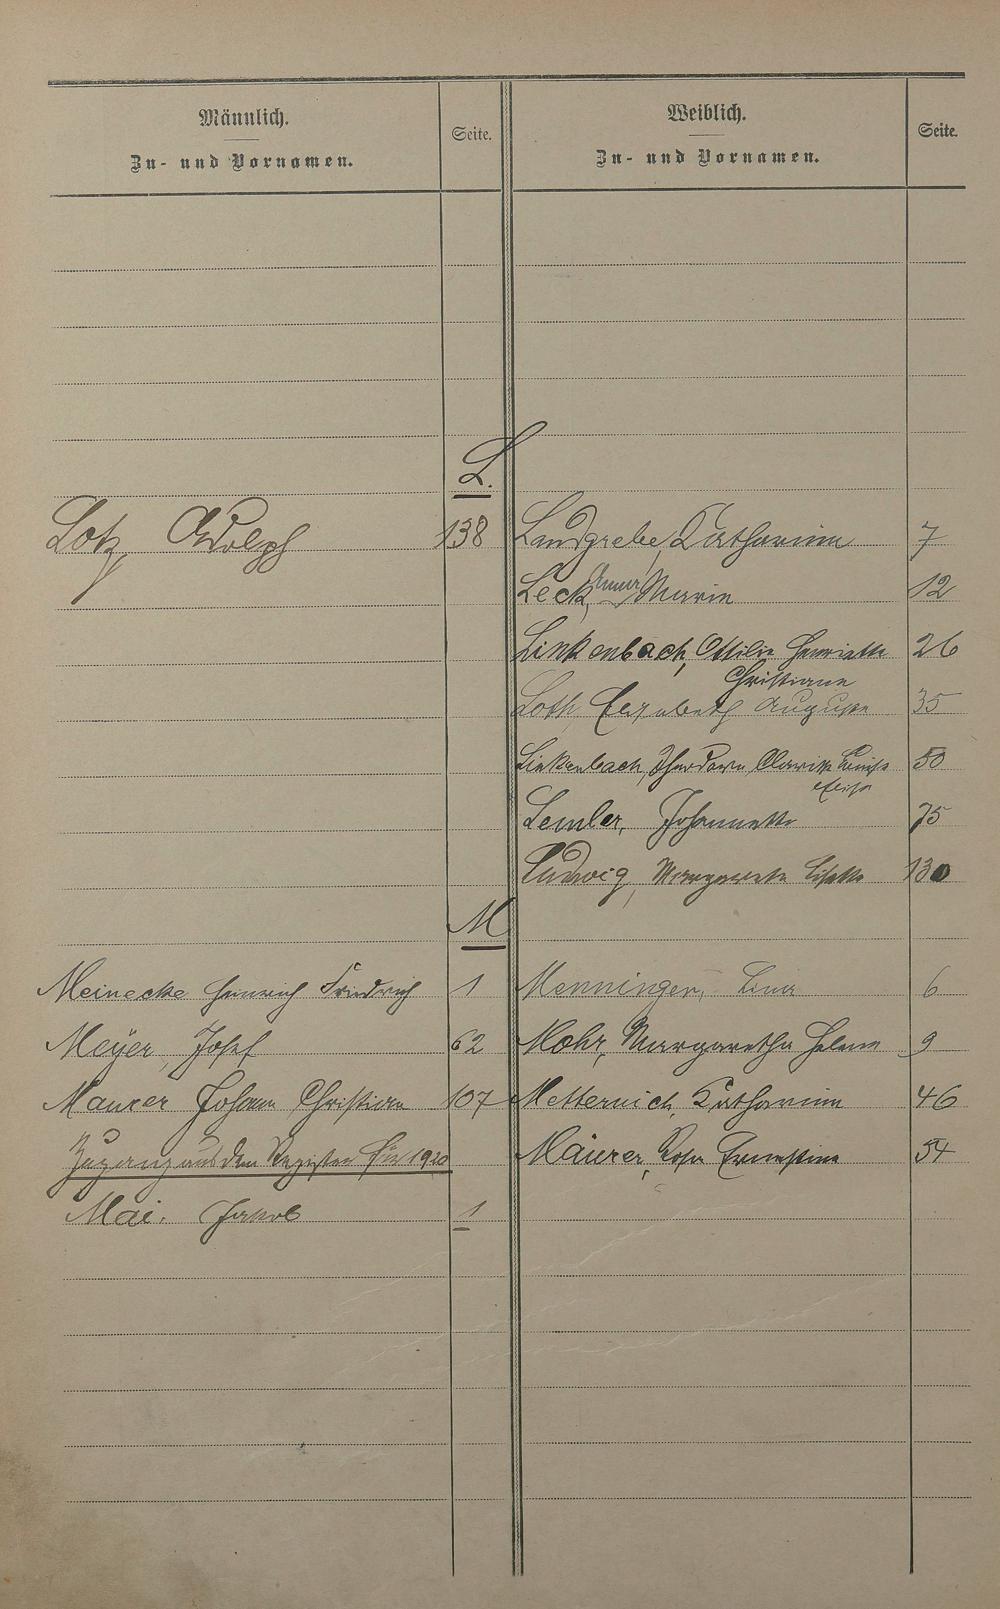 Männlich.
Zu- und Vornamen.
Seite.
Weiblich.
Zu- und Vornamen.
Seite.
L.
Lotz, Adolph 138
Landgrebe, Katharina 7
Anna
Leck, Marie 12
Linkenbach, Ottilie Henriette 26
Christiane
Loth, Elisabeth Auguste 35
Linkenbach, Theodore Luise 50
Elisa
Lemler, Johannette 75
Ludwig, Margarete Lisette 130
M
Meinecke Heinrich Friedrich 1
Menninger, Lina 6
Meyer, Josef 62
Mohr, Margaretha Helene 9
Maurer Johann Christian 107
Metternich, Katharina 46
Zugang aus dem Register für 1920
Maurer, Rosa Ernestine 54
Mai, Jakob 1